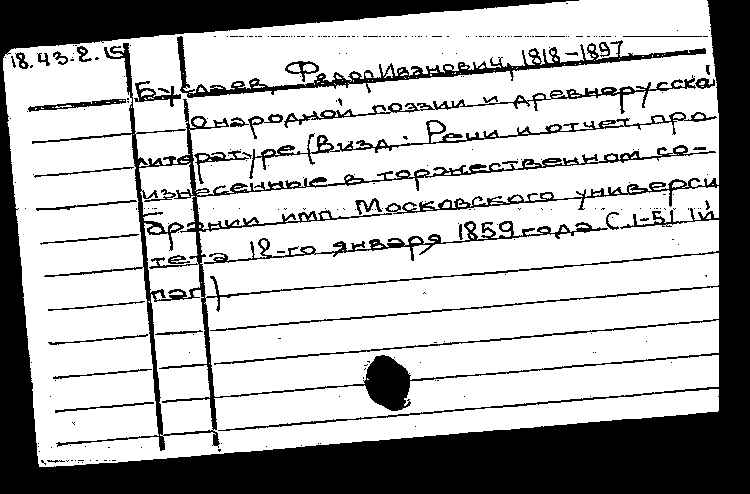 18.43.2.15
Буслаев, Федор Иванович, 1818-1897.
О народной поэзии и древнерусской
литературе. (В изд.: Речи и отчет, про
изнесенные в торжественном со-
брании имп. Московского универси
тета 12-го января 1859 года С. 1-51 1й
паг.).